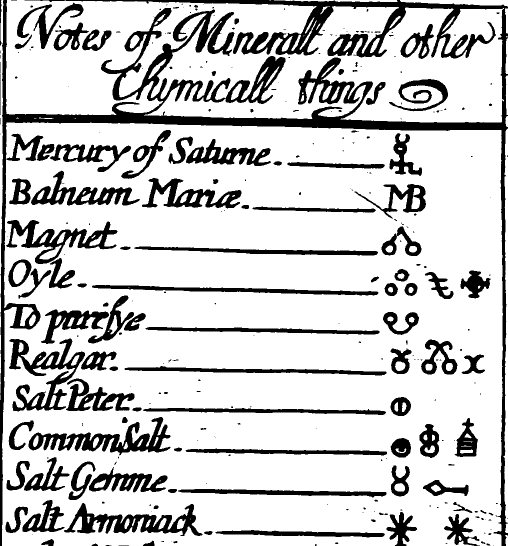 Notes of Minerall and other
Chymicall things
Mercury of Saturne.
Balneum Mariæ. MB
Magnet.
Oyle.
To purifye
Realgar.
Salt Peter.
Common Salt.
Salt Gemme.
Salt Armoniack